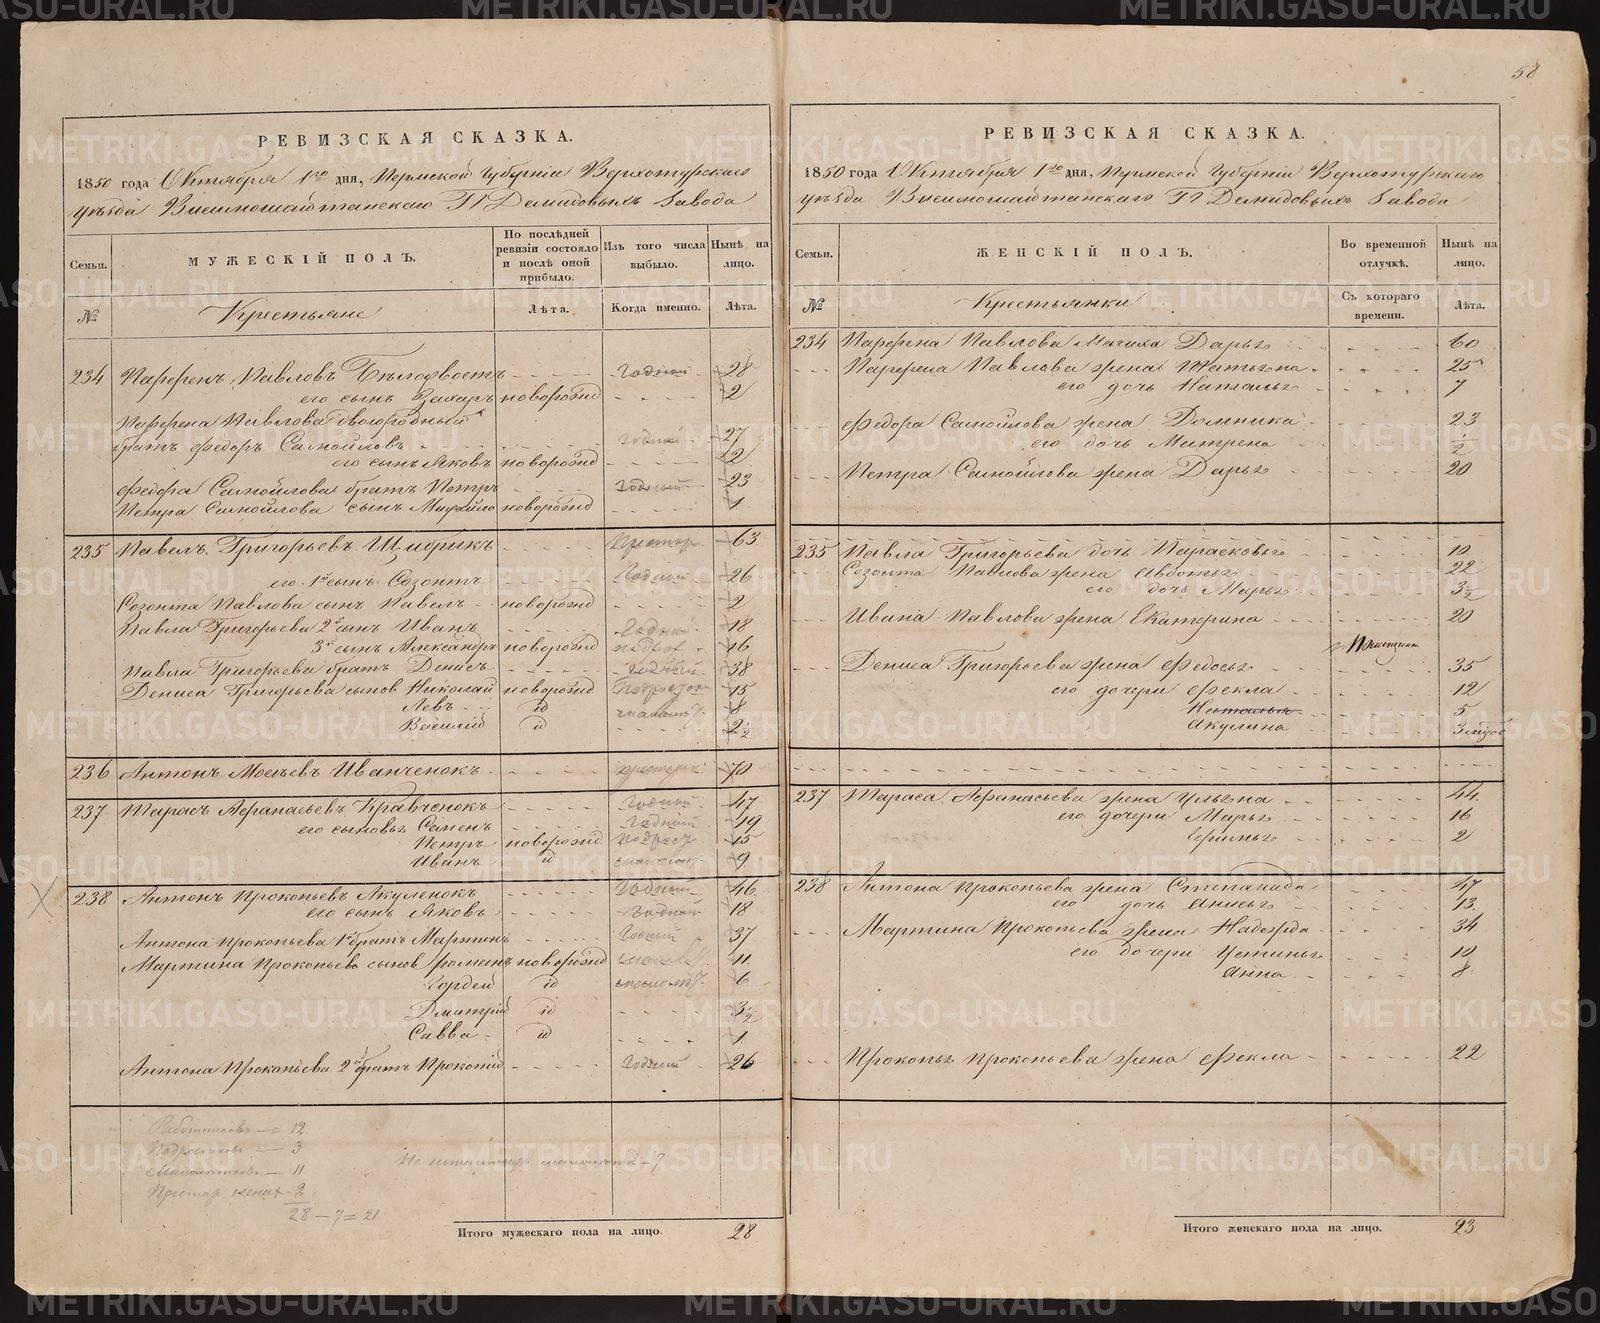 58
РЕВИЗСКАЯ СКАЗКА.
1850 года Октября 1го дня, Пермской Губерніи Верхотурскаго
уѣзда Висимошайтанскаго ГГ Демидовыхъ завода
Семьи.
МУЖЕСКІЙ ПОЛЪ.
По послѣдней ревизіи состояло и послѣ оной прибыло.
Изъ того числа выбыло.
Нынѣ на лицо.
№
Крестьяне
Лѣта.
Когда именно.
Лѣта.
234 Парфенъ Павловъ Бѣлохвостъ Годный 28
его сынъ Захаръ новорожд 2
Парфена Павлова двоюродный
братъ Федоръ Самойловъ годный 27
его сынъ Яковъ новорожд 2
Федора Самойлова братъ Петръ Годный 23
Петра Самойлова сынъ Михайло новорожд 1
235 Павелъ Григорьевъ Щибрикъ Престар 63
его 1й сынъ Созонтъ Годный 26
Созонта Павлова сынъ Павелъ новорожд 2
Павла Григорьева 2й сынъ Иванъ Годный 18
3й сынъ Александръ новорожд подрос 16
Павла Григорьева братъ Денисъ годный 38
Дениса Григорьева сынов Николай новорожд Подросток 15
Левъ id 8
Василій id 2½
236 Антонъ Мосѣевъ Иванченокъ престар 70
237 Тарасъ Афанасьевъ Кравченокъ Годный 47
его сыновья Семенъ Годный 19
Петръ новорожд подрост 15
Иванъ id 9
238 Антонъ Прокопьевъ Акуленокъ Годный 46
его сынъ Яковъ Годный 18
Антона Прокопьева 1й братъ Мартинъ Годный 37
Мартина Прокопьева сынов Романъ новорожд 11
Гордей id 6
Дмитрій id 3½
Савва id 1
Антона Прокопьева 2й братъ Прокопій Годный 26
Работников — 12
Подростков — 3
Малолѣтков — 11
Престар 2
28 — 7 = 21
7
Итого мужескаго пола на лицо. 28
РЕВИЗСКАЯ СКАЗКА.
1850 года Октября 1го дня, Пермской Губерніи Верхотурскаго
уѣзда Висимошайтанскаго ГГ Демидовыхъ завода
Семьи.
ЖЕНСКІЙ ПОЛЪ.
Во временной отлучкѣ.
Нынѣ на лицо.
№
Крестьянки
Съ котораго времени.
Лѣта.
234 Парфена Павлова Мачиха Дарья 60
Парфена Павлова жена Татьяна 25
его дочь Наталья 7
Федора Самойлова жена Домника 23
его дочь Матрена ½
Петра Самойлова жена Дарья 20
235 Павла Григорьева дочь Парасковья 10
Созонта Павлова жена Авдотья 22
его дочь Марья 3½
Ивана Павлова жена Екатерина 20
Дениса Григорьева жена Федосья 35
его дочери Фекла 12
Наталья 5
Акулина 3
237 Тараса Афанасьева жена Ульяна 44
его дочери Марья 16
2
238 Антона Прокопьева жена Степанида 47
его дочь Анисья 13
Мартина Прокопьева жена Надежда 34
его дочери Устинья 10
Анна 8
Прокопья Прокопьева жена Фекла 22
Итого женскаго пола на лицо. 23
METRIKI.GASO-URAL.RU